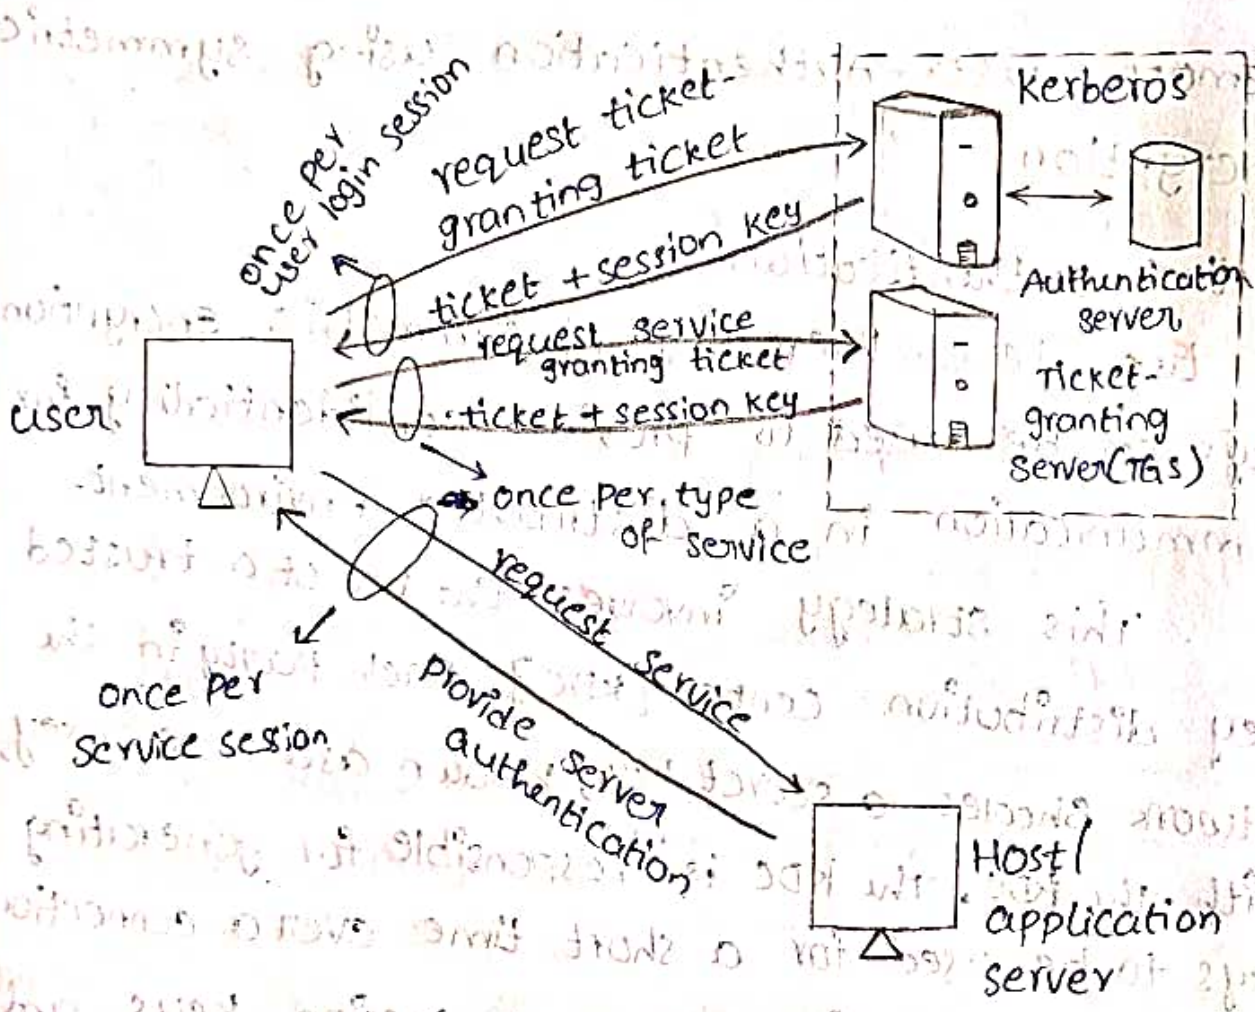 Kerberos
once per
user login session
request ticket-
granting ticket
ticket + session key
Authentication
server
request service
granting ticket
ticket + session key
Ticket-
granting
server(TGS)
user
once per type
of service
request service
once per
service session
provide server
authentication
Host/
application
server